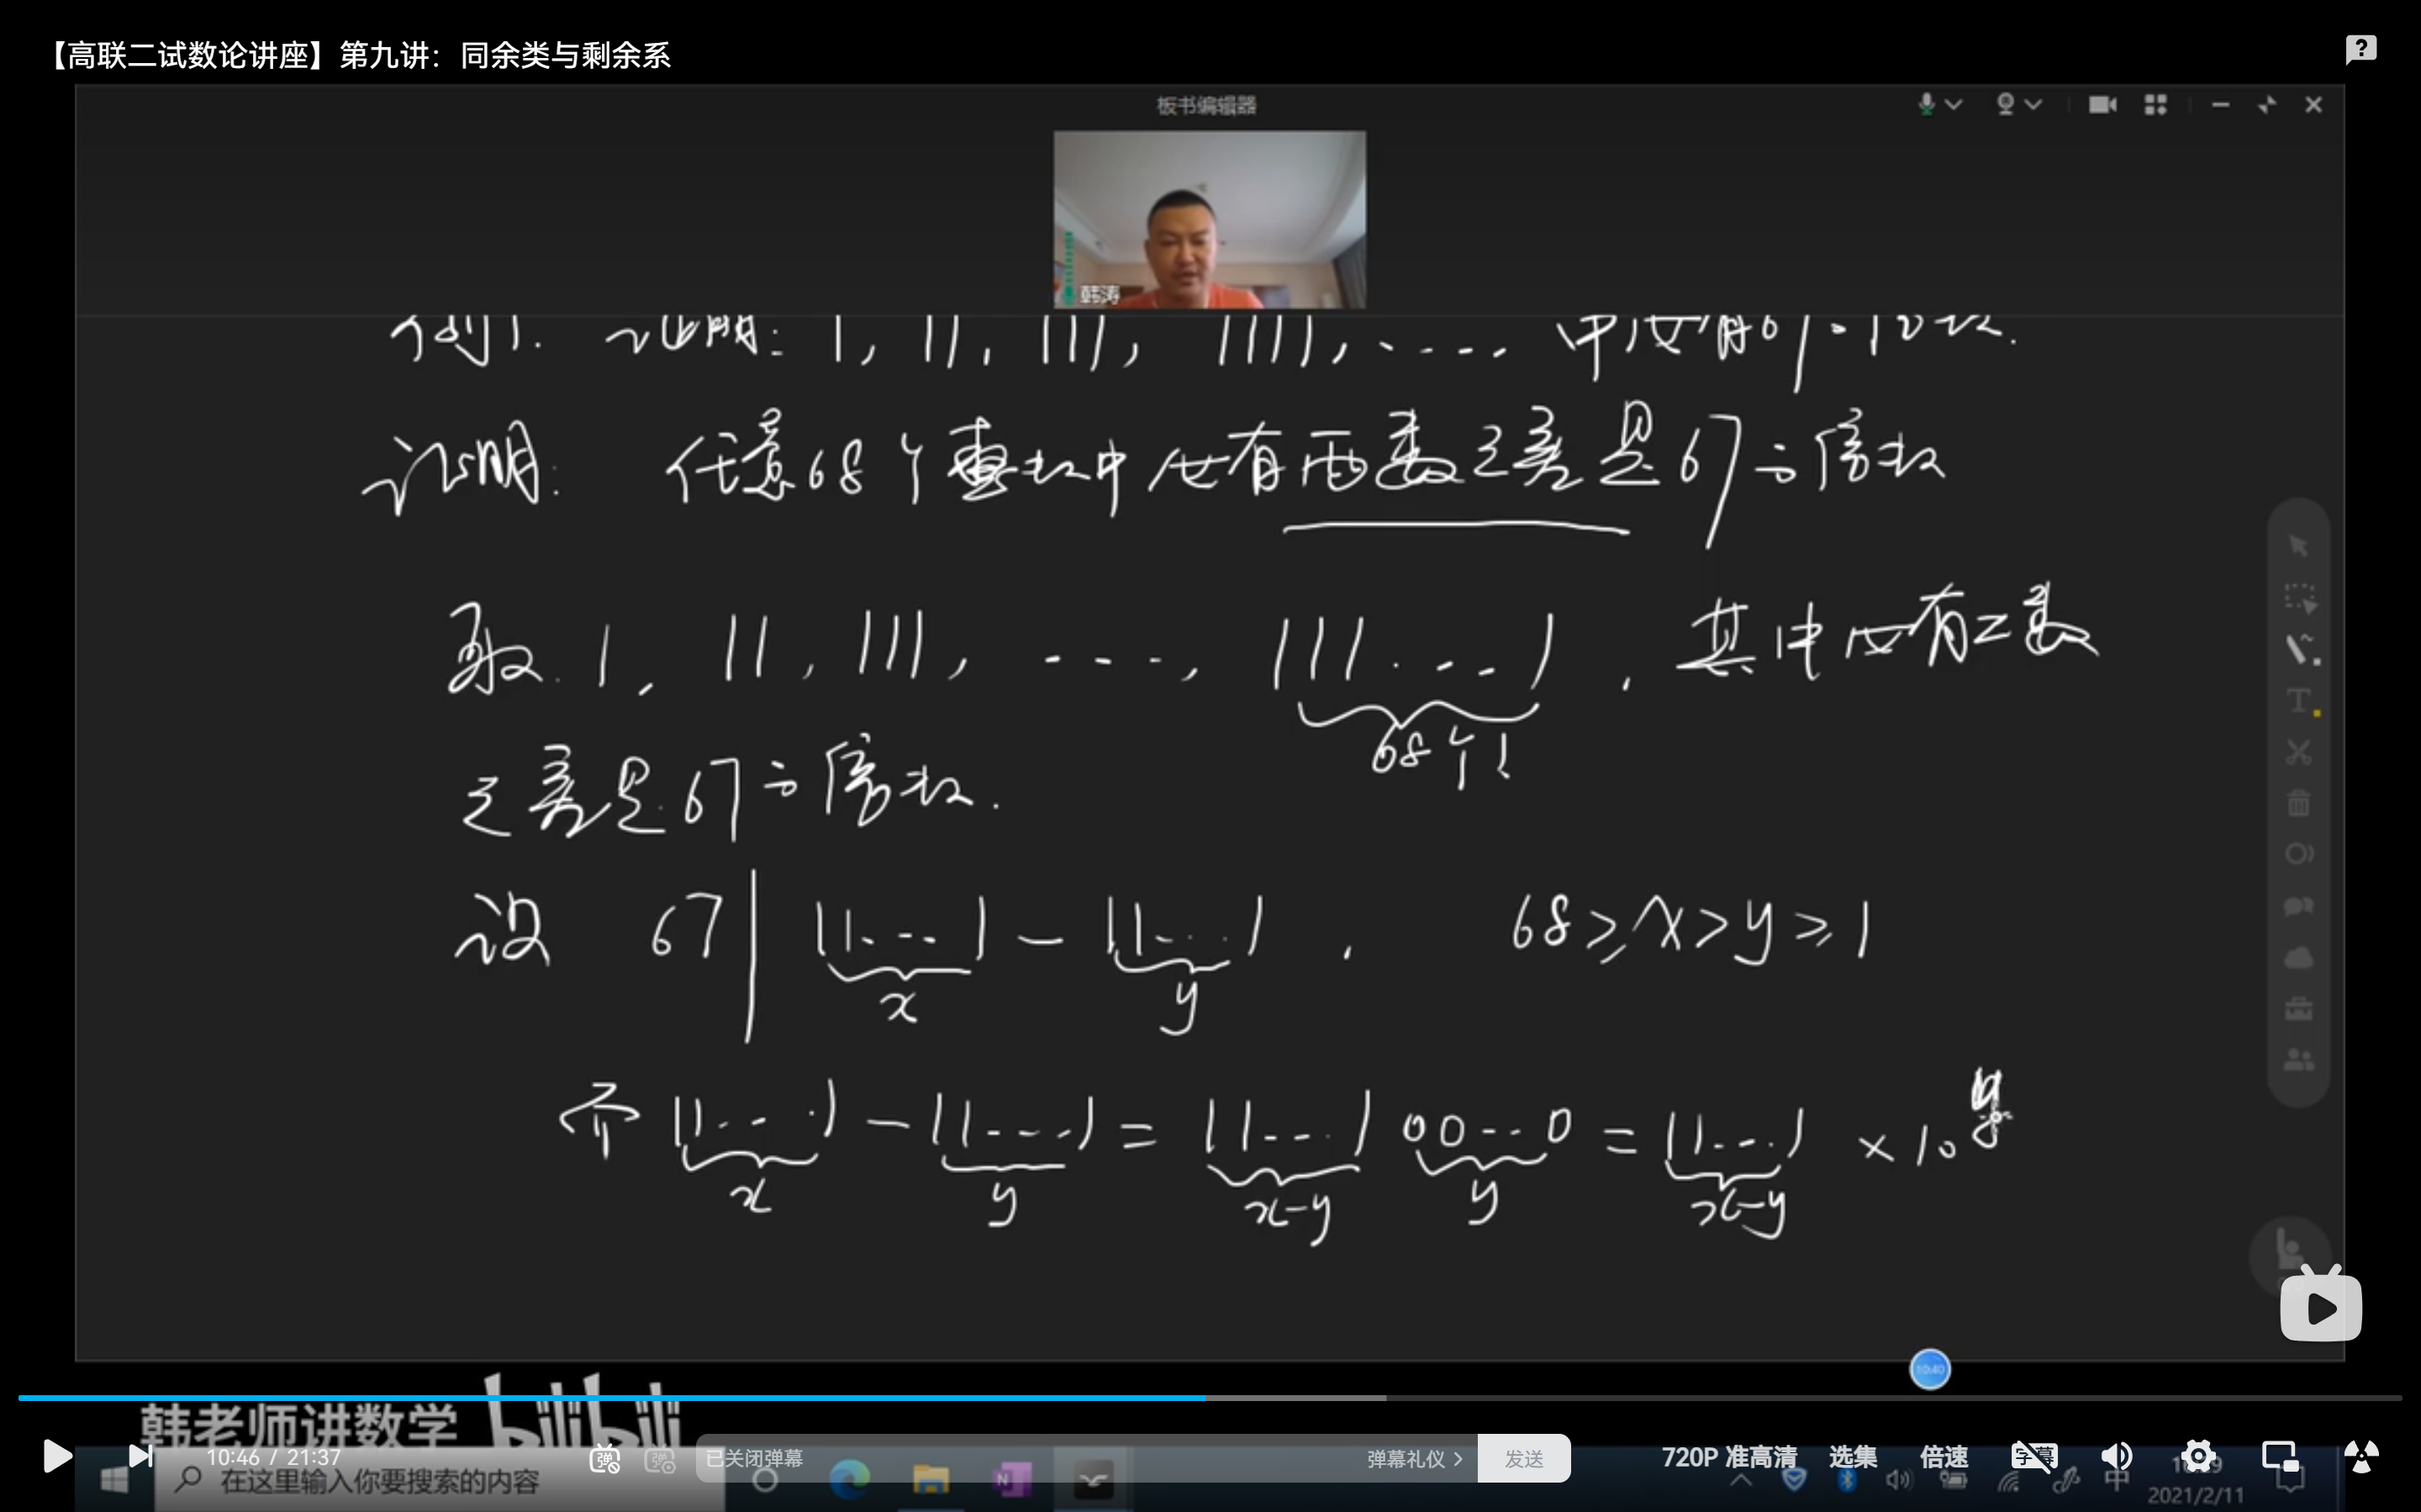 【高联二试数论讲座】第九讲：同余类与剩余系
板书编辑器
韩涛
例1. 证明: 1, 11, 111, 1111, ..... 中必有67的倍数.
证明: 任意68个整数中必有两数之差是67的倍数
取 1, 11, 111, ...., 111...1, 其中必有二数
68个1
之差是67的倍数.
设 67 | 11...1 - 11...1, 68≥x>y≥1
x y
而 11...1 - 11...1 = 11...1 00...0 = 11...1 ×10
x y x-y y x-y
10:40
韩老师讲数学 bilibili
10:46 / 21:37 弹 弹 已关闭弹幕 弹幕礼仪 > 发送 720P 准高清 选集 倍速 字幕
在这里输入你要搜索的内容 N 中
2021/2/11